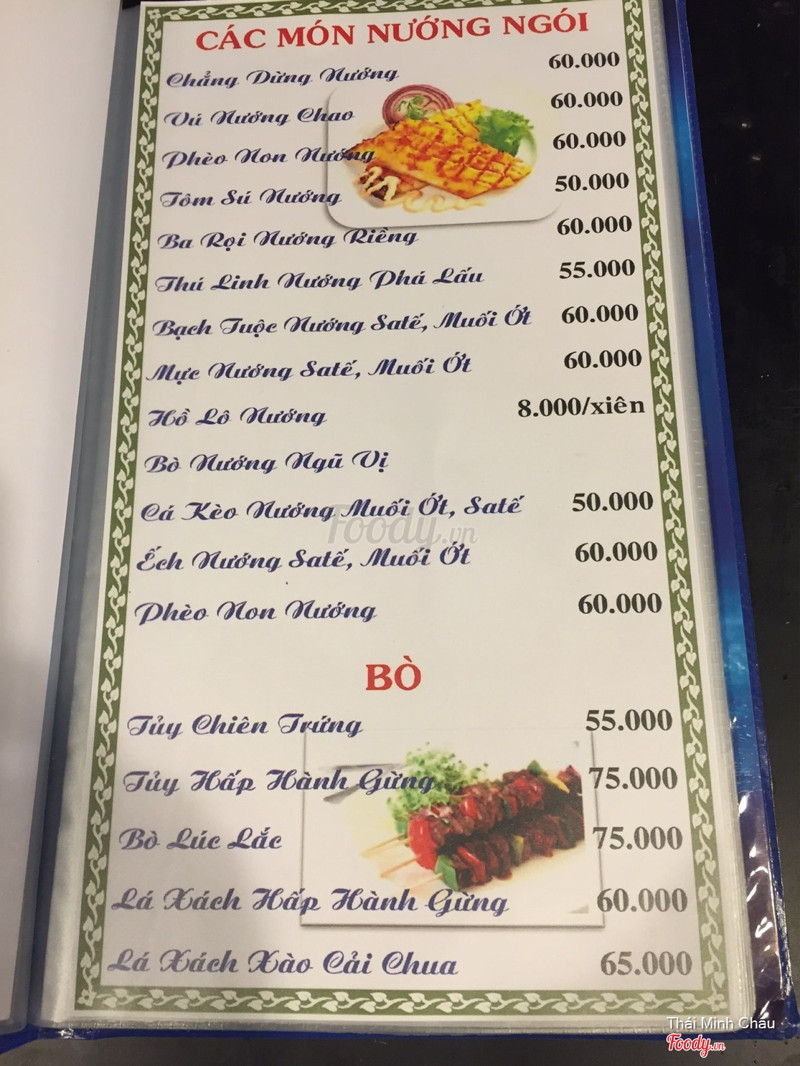 CÁC MÓN NƯỚNG NGÓI
Chẳng Dừng Nướng 60.000
Vú Nướng Chao 60.000
Phèo Non Nướng 60.000
Tôm Sú Nướng 50.000
Ba Rọi Nướng Riềng 60.000
Thú Linh Nướng Phá Lấu 55.000
Bạch Tuộc Nướng Satế, Muối Ớt 60.000
Mực Nướng Satế, Muối Ớt 60.000
Hồ Lô Nướng 8.000/xiên
Bò Nướng Ngũ Vị
Cá Kèo Nướng Muối Ớt, Satế 50.000
Foody.vn
Ếch Nướng Satế, Muối Ớt 60.000
Phèo Non Nướng 60.000
BÒ
Tủy Chiên Trứng 55.000
Tủy Hấp Hành Gừng 75.000
Bò Lúc Lắc 75.000
Lá Xách Hấp Hành Gừng 60.000
Lá Xách Xào Cải Chua 65.000
Thái Minh Châu
Foody.vn